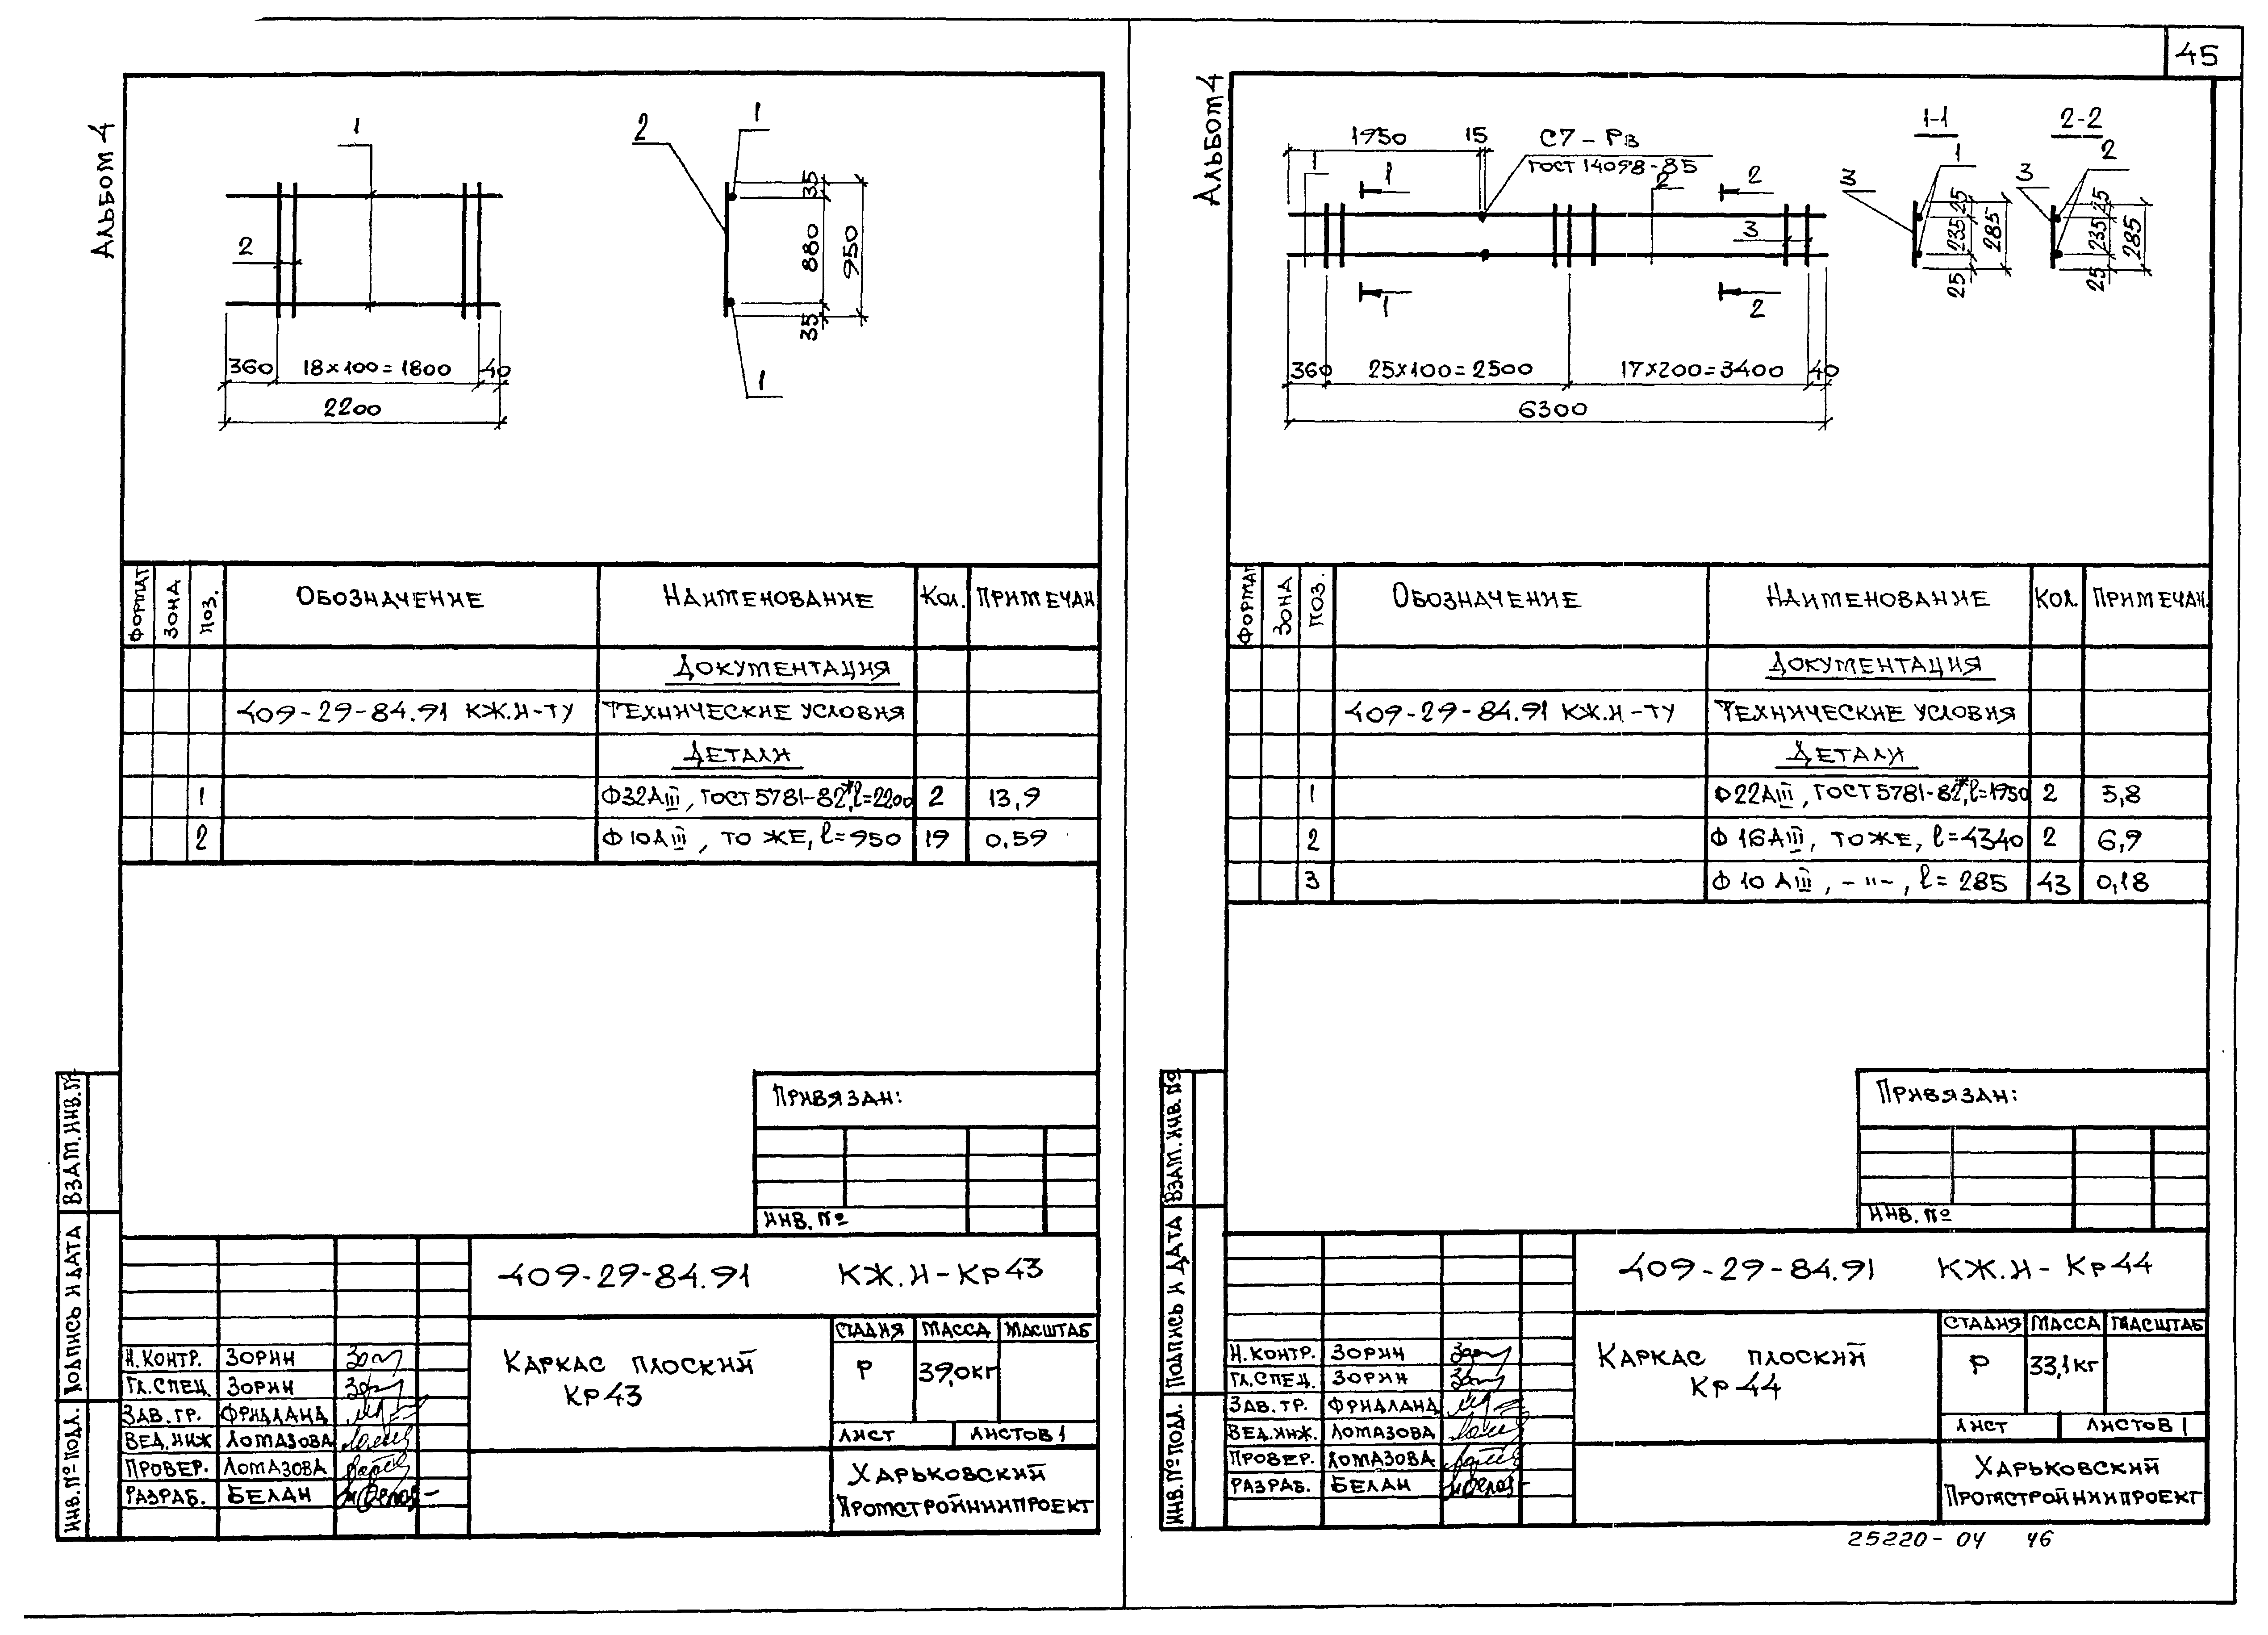 45
Альбом 4
1
2
360
18×100=1800
40
2200
2
1
35
880
950
35
1
ФОРМАТ ЗОНА ПОЗ. ОБОЗНАЧЕНИЕ НАИМЕНОВАНИЕ КОЛ. ПРИМЕЧАН.
ДОКУМЕНТАЦИЯ
409-29-84.91 КЖ.И-ТУ ТЕХНИЧЕСКИЕ УСЛОВИЯ
ДЕТАЛИ
1 Ф32АIII, ГОСТ 5781-82*, ℓ=2200 2 13,9
2 Ф10АIII, ТО ЖЕ, ℓ=950 19 0,59
ПРИВЯЗАН:
ИНВ. №
409-29-84.91 КЖ.И-Кр43
КАРКАС ПЛОСКИЙ
КР43
СТАДИЯ МАССА МАСШТАБ
Р 39,0кг
ЛИСТ ЛИСТОВ 1
ХАРЬКОВСКИЙ
ПРОМСТРОЙНИИПРОЕКТ
Н.КОНТР. ЗОРИН
ГЛ.СПЕЦ. ЗОРИН
ЗАВ.ГР. ФРИДЛАНД
ВЕД.ИНЖ ЛОМАЗОВА
ПРОВЕР. ЛОМАЗОВА
РАЗРАБ. БЕЛАН
ВЗАМ.ИНВ.№
ПОДПИСЬ И ДАТА
ИНВ.№ПОДЛ.
Альбом 4
1950 15 С7-Рв
ГОСТ 14098-85
1
1
2
2
3
1
2
360
25×100=2500
17×200=3400
40
6300
1-1
3
1
25
235
285
25
2-2
3
2
25
235
285
25
ФОРМАТ ЗОНА ПОЗ. ОБОЗНАЧЕНИЕ НАИМЕНОВАНИЕ КОЛ. ПРИМЕЧАН.
ДОКУМЕНТАЦИЯ
409-29-84.91 КЖ.И-ТУ ТЕХНИЧЕСКИЕ УСЛОВИЯ
ДЕТАЛИ
1 Ф22АIII, ГОСТ 5781-82*, ℓ=1950 2 5,8
2 Ф16АIII, ТО ЖЕ, ℓ=4340 2 6,9
3 Ф10 АIII, -"-, ℓ=285 43 0,18
ПРИВЯЗАН:
ИНВ. №
409-29-84.91 КЖ.И-Кр44
КАРКАС ПЛОСКИЙ
КР44
СТАДИЯ МАССА МАСШТАБ
Р 33,1кг
ЛИСТ ЛИСТОВ 1
ХАРЬКОВСКИЙ
ПРОМСТРОЙНИИПРОЕКТ
Н.КОНТР. ЗОРИН
ГЛ.СПЕЦ. ЗОРИН
ЗАВ.ГР. ФРИДЛАНД
ВЕД.ИНЖ. ЛОМАЗОВА
ПРОВЕР. ЛОМАЗОВА
РАЗРАБ. БЕЛАН
ВЗАМ.ИНВ.№
ПОДПИСЬ И ДАТА
ИНВ.№ПОДЛ.
25220-04 46